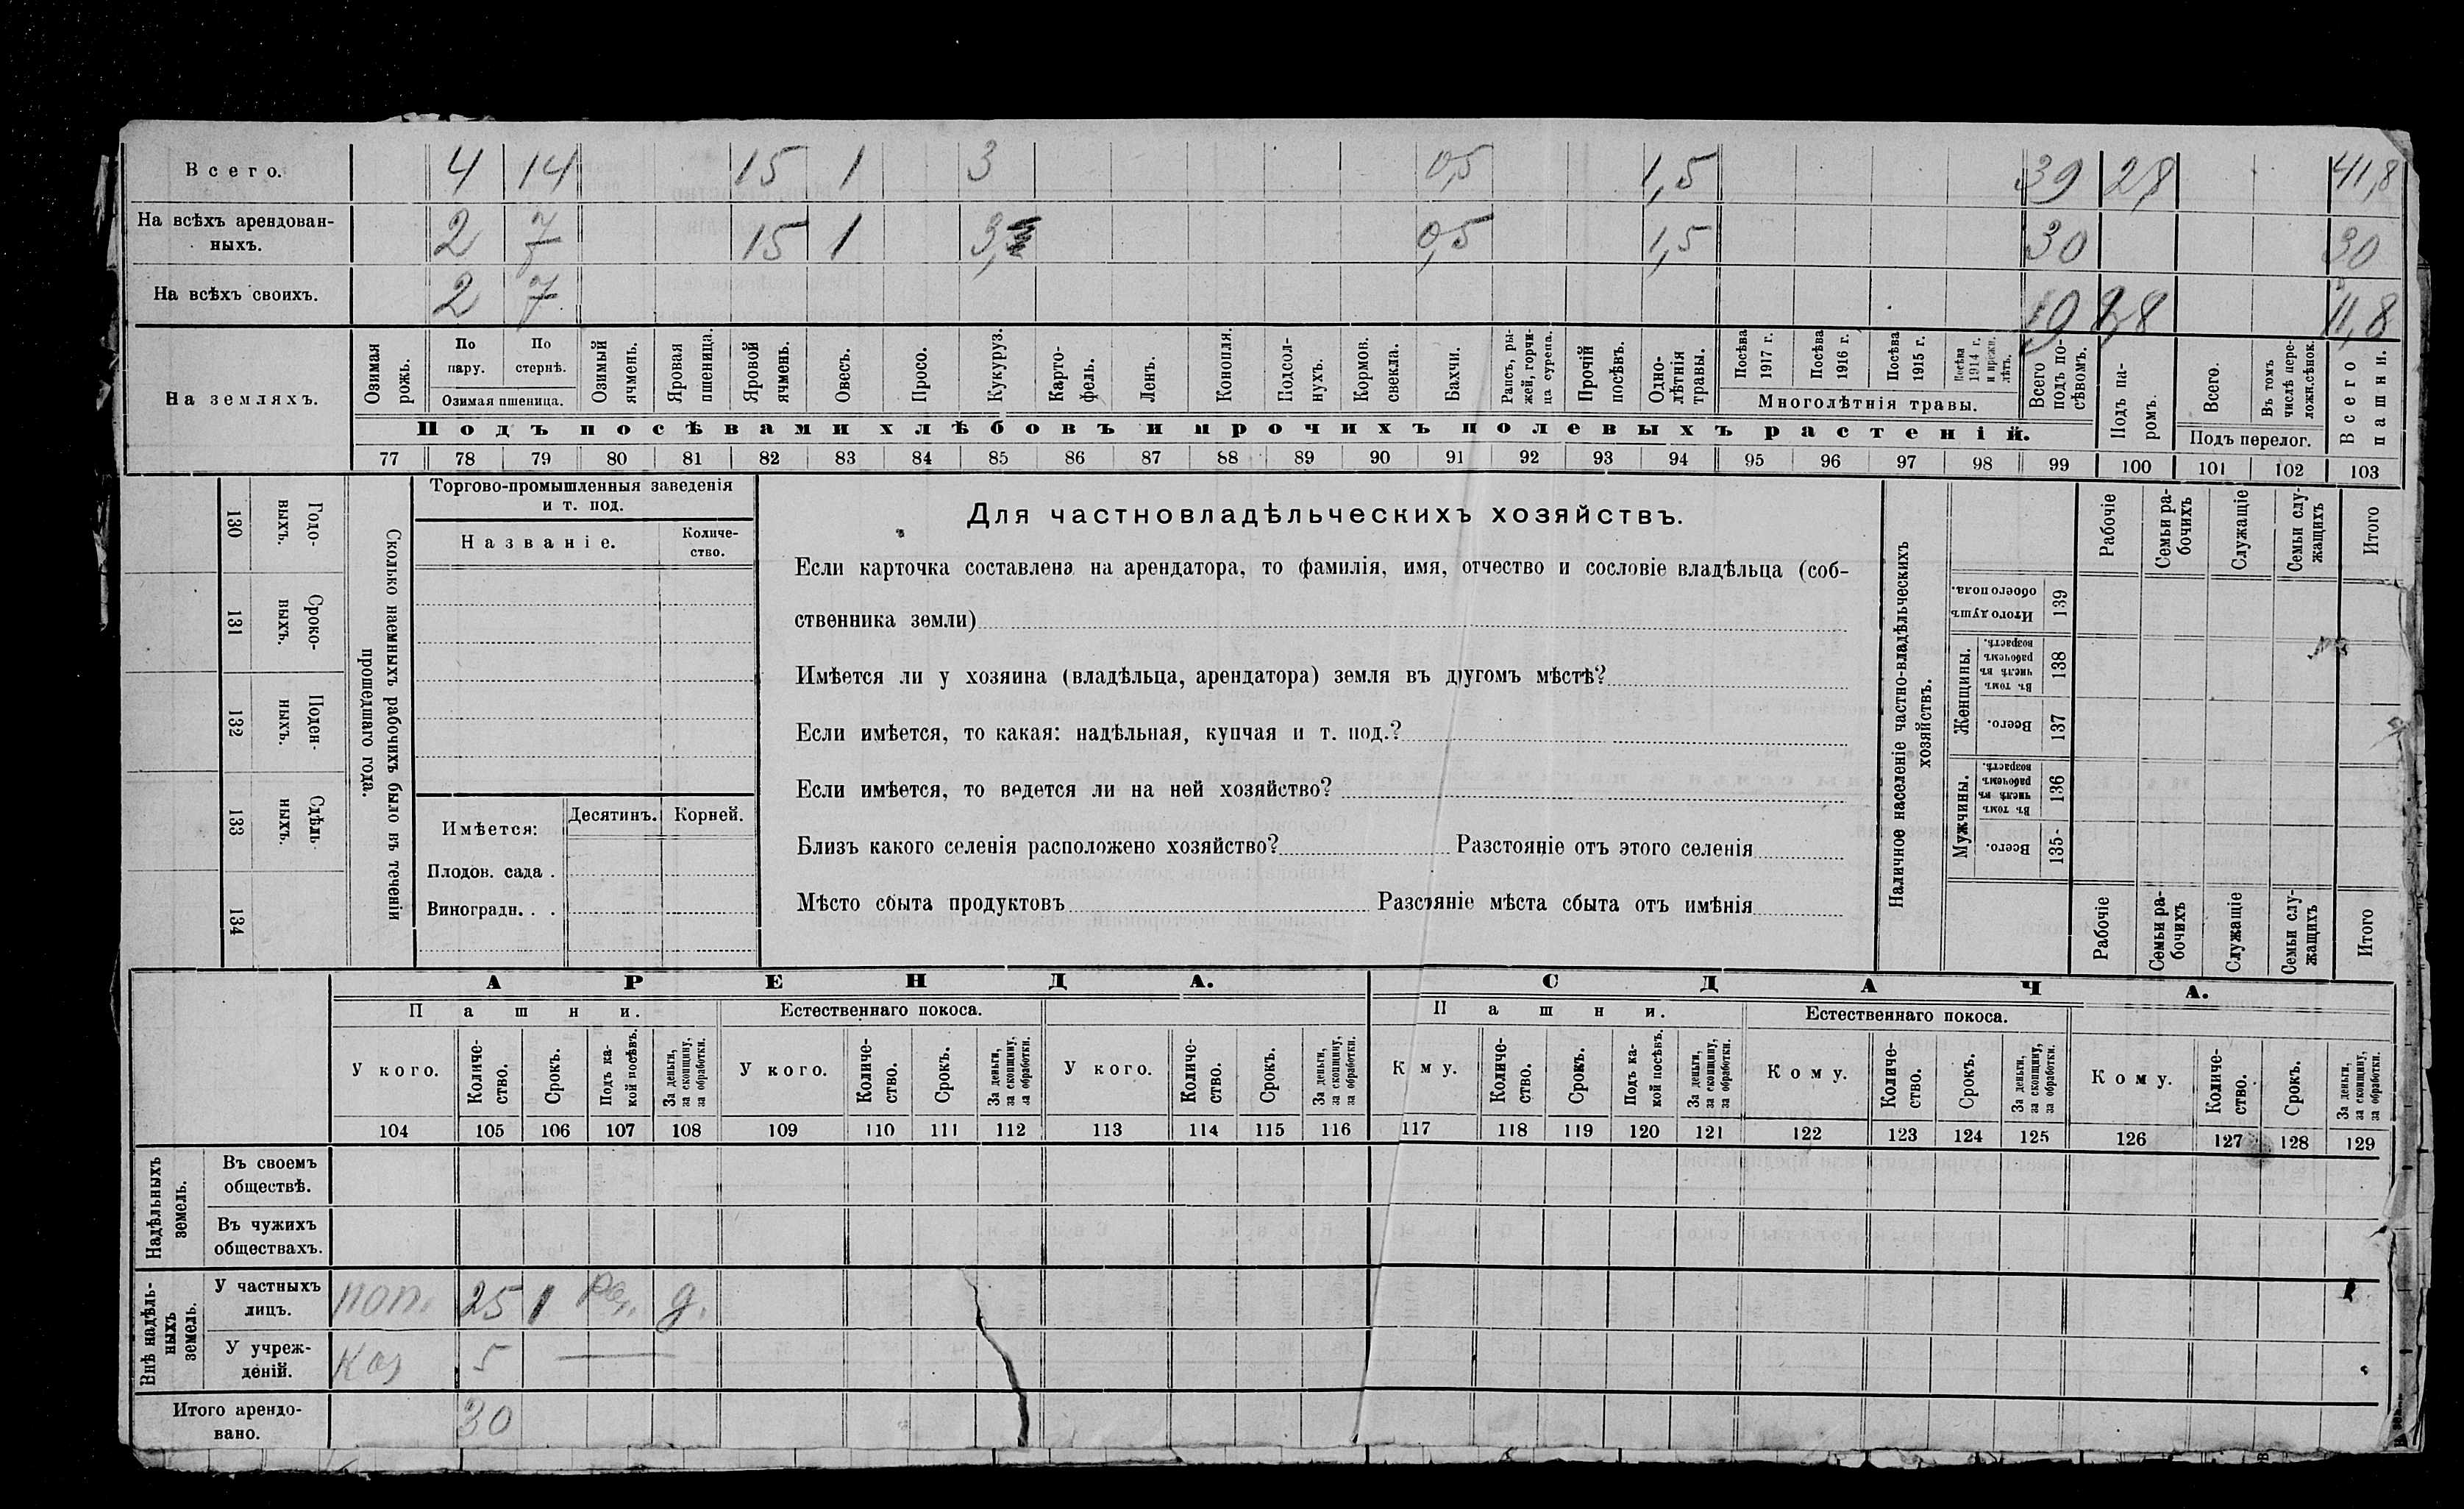 Всего. 4 14 15 1 3 0,5 1,5 39 2,8 41,8
На всѣхъ арендован-
ныхъ. 2 7 15 1 3, 0,5 1,5 30 30
На всѣхъ своихъ. 2 7 2,8 11,8
На земляхъ.
Озимая рожь.
По пару.
По стернѣ.
Озимая пшеница.
Озимый ячмень.
Яровая пшеница.
Яровой ячмень.
Овесъ.
Просо.
Кукуруз.
Карто-
фель.
Ленъ.
Конопля.
Подсол-
нухъ.
Кормов. свекла.
Бахчи.
Рапсъ, ры-
жей, горчи-
ца сурепа.
Прочій посѣвъ.
Одно-
лѣтнія травы.
Посѣва 1917 г.
Посѣва 1916 г.
Посѣва 1915 г.
Посѣва 1914 г. и прежн. лѣтъ.
Многолѣтнія травы.
Всего подъ по-
сѣвомъ.
Подъ па-
ромъ.
Всего.
Въ томъ числѣ пере-
ложн.сѣнок.
Подъ перелог.
Всего пашни.
Подъ посѣвами хлѣбовъ и прочихъ полевыхъ растеній.
77 78 79 80 81 82 83 84 85 86 87 88 89 90 91 92 93 94 95 96 97 98 99 100 101 102 103
130 Годо-
выхъ.
131 Сроко-
выхъ.
132 Поден-
ныхъ.
133 Сдѣль-
ныхъ.
134
Сколько наемныхъ рабочихъ было въ теченіи
прошедшаго года.
Торгово-промышленныя заведенія
и т. под.
Названіе.
Количе-
ство.
Имѣется:
Десятинъ. Корней.
Плодов. сада .
Виноградн. . .
Для частновладѣльческихъ хозяйствъ.
Если карточка составлена на арендатора, то фамилія, имя, отчество и сословіе владѣльца (соб-
ственника земли)
Имѣется ли у хозяина (владѣльца, арендатора) земля въ другомъ мѣстѣ?
Если имѣется, то какая: надѣльная, купчая и т. под.?
Если имѣется, то ведется ли на ней хозяйство?
Близъ какого селенія расположено хозяйство? Разстояніе отъ этого селенія
Мѣсто сбыта продуктовъ Разстяніе мѣста сбыта отъ имѣнія
Наличное населеніе частно-владѣльческихъ
хозяйствъ.
Рабочіе
Семьи ра-
бочихъ
Служащіе
Семьи слу-
жащихъ
Итого
Итого душъ обоего пола. 139
Женщины.
Въ томъ числѣ въ рабочемъ возрастѣ. 138
Всего. 137
Мужчины.
Въ томъ числѣ въ рабочемъ возрастѣ. 136
Всего. 135
Рабочіе
Семьи ра-
бочихъ
Служащіе
Семьи слу-
жащихъ
Итого
АРЕНДА. СДАЧА.
Пашни. Естественнаго покоса. Пашни. Естественнаго покоса.
У кого.
Количе-
ство.
Срокъ.
Подъ ка-
кой посѣвъ.
За деньги, за скопщину, за обработки.
У кого.
Количе-
ство.
Срокъ.
За деньги, за скопщину, за обработки.
У кого.
Количе-
ство.
Срокъ.
За деньги, за скопщину, за обработки.
К му.
Количе-
ство.
Срокъ.
Подъ ка-
кой посѣвъ.
За деньги, за скопщину, за обработки.
Кому.
Количе-
ство.
Срокъ.
За деньги, за скопщину, за обработки.
Кому.
Количе-
ство.
Срокъ.
За деньги, за скопщину, за обработки.
104 105 106 107 108 109 110 111 112 113 114 115 116 117 118 119 120 121 122 123 124 125 126 127 128 129
Надѣльныхъ земель.
Въ своемъ
обществѣ.
Въ чужихъ
обществахъ.
Внѣ надѣль-
ныхъ земель.
У частныхъ
лицъ. пом. 25 1 д.
У учреж-
деній. Каз 5
Итого арендо-
вано. 30